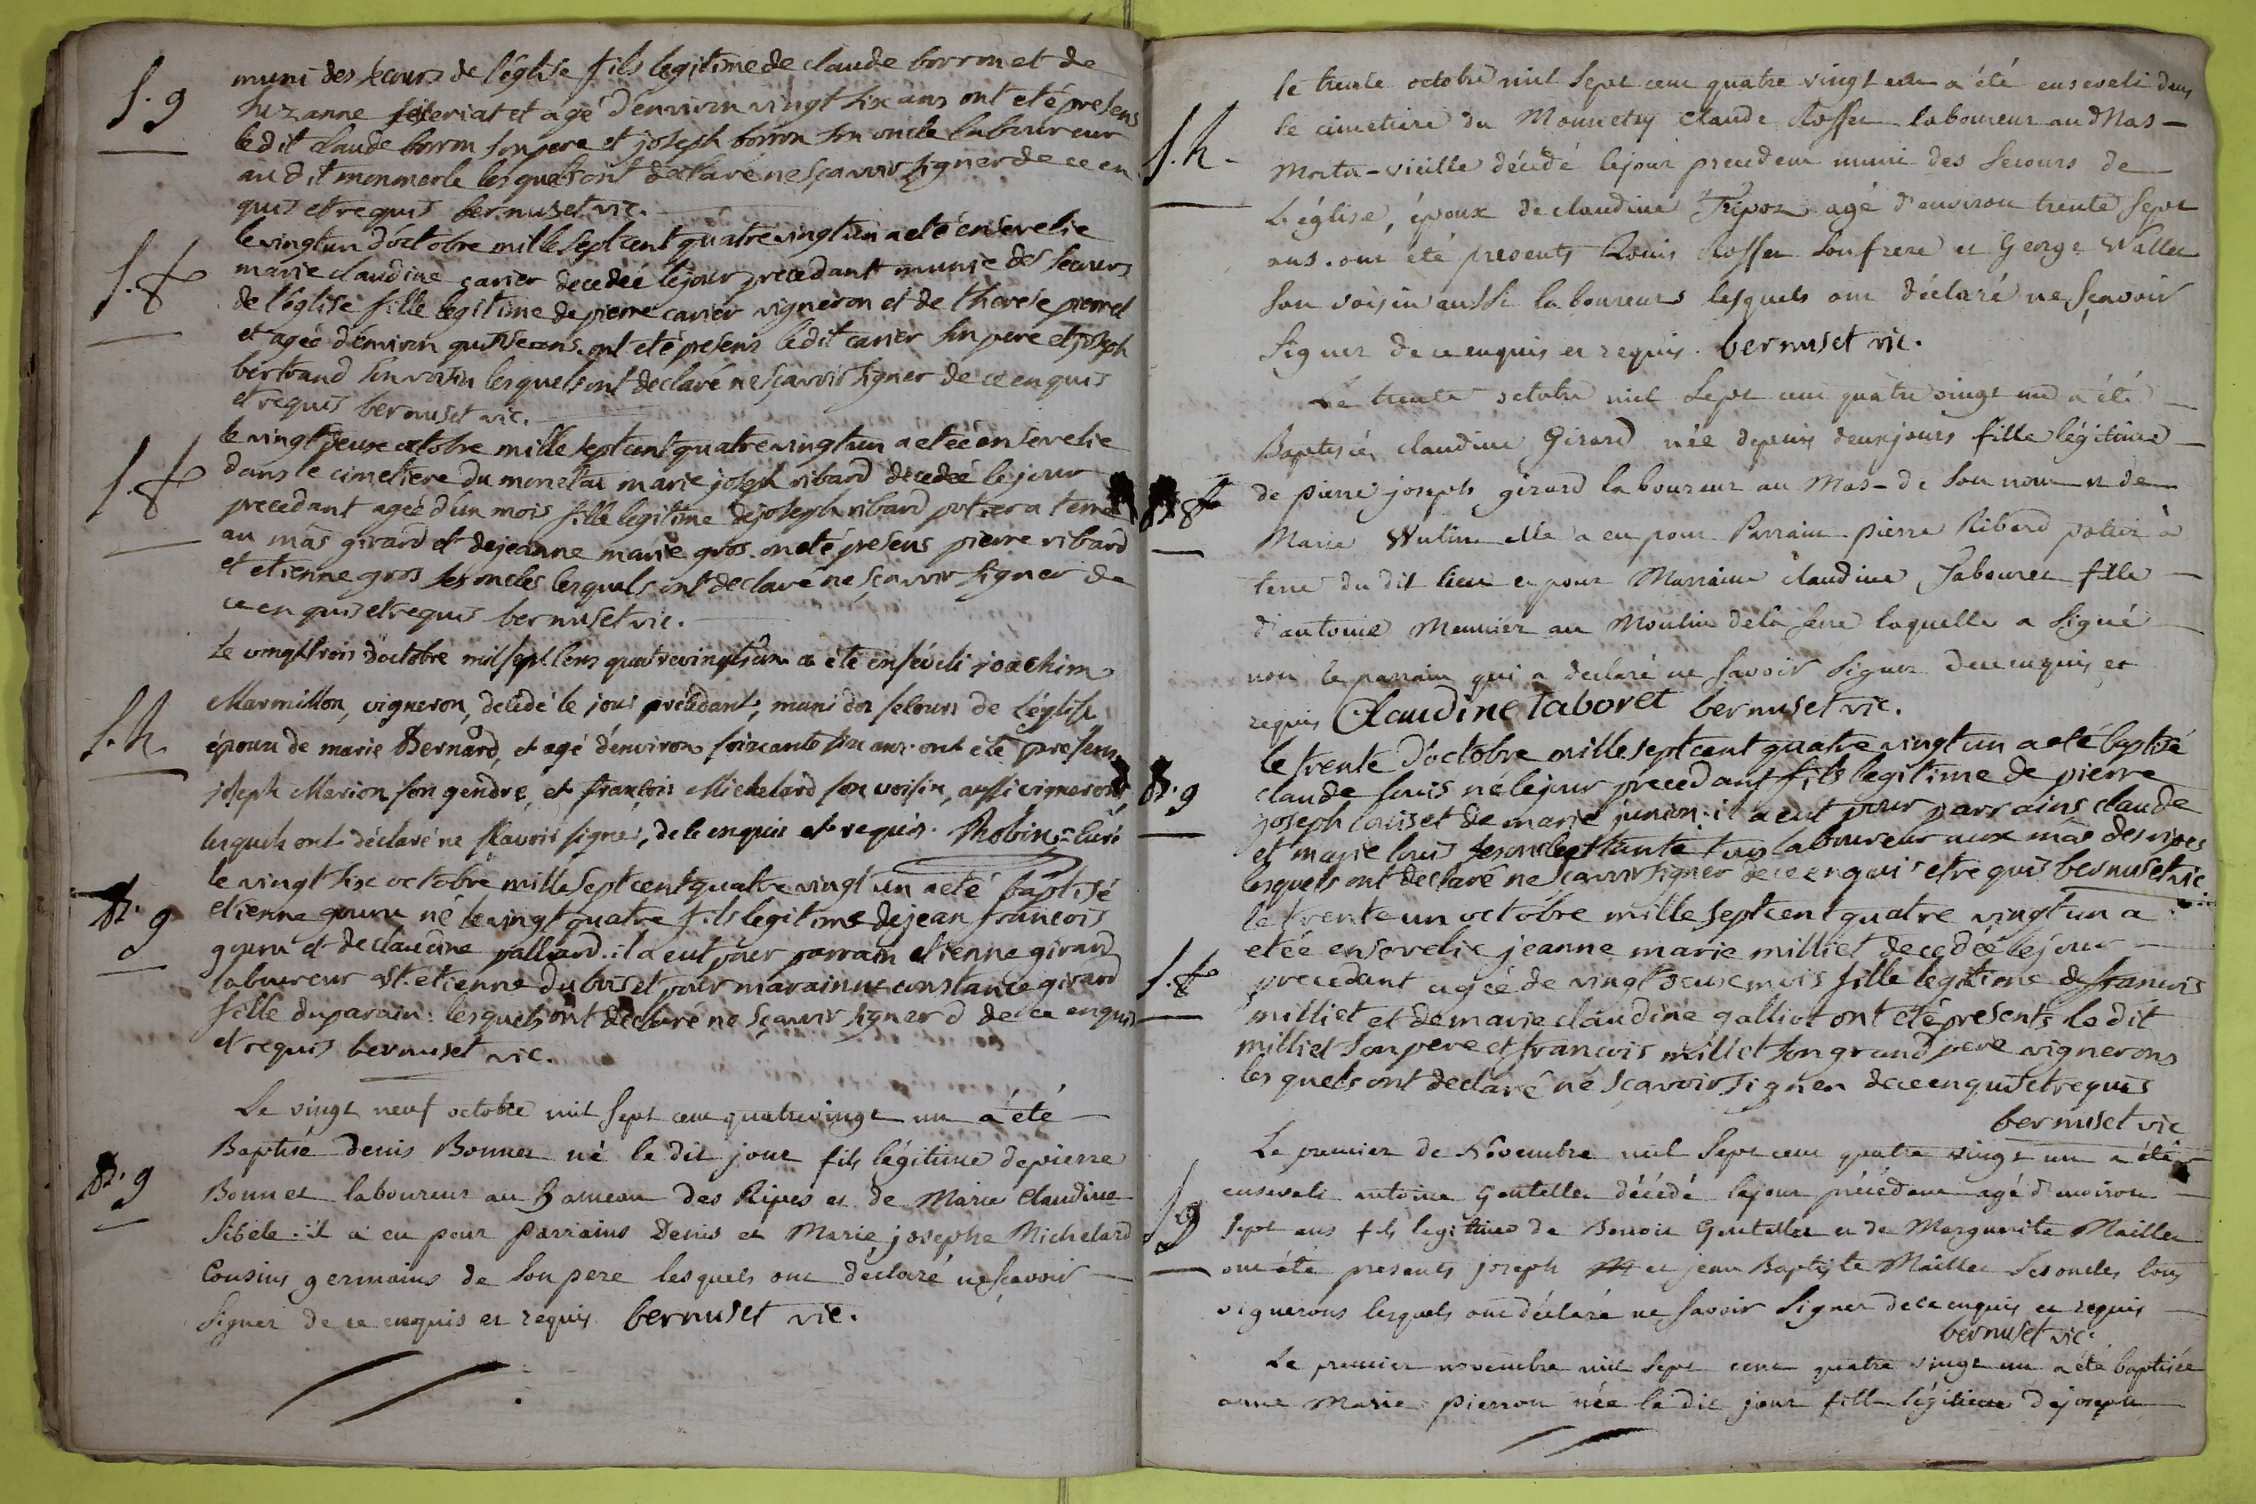 S. g
muni des secours de l'église fils legitime de claude borron et de
suzanne feteriat et agé d'environ vingt six ans ont eté presens
ledit claude borron son pere et joseph borron son oncle laboureur
au dit monmerle lesquels ont déclaré ne sçavoir signer de ce en
quis et requis bernuset vic.
S. f
le vingt un d'octobre mille sept cent quatre vingt un a eté ensevelie
marie claudine carrier decedeé le jour precedant munie des secours
de l'église fille legitime de pierre carrier vigneron et de therese pierrel
et ageé d'environ ans. ont eté presens ledit carrier son pere et joseph
bertrand son voisin lesquels ont declaré ne sçavoir signer de ce enquis
et requis bernuset vic.
S. f
le vingt deux octobre mille sept cent quatre vingt un a eteé ensevelie
dans le cimetiere du monetai marie joseph ribard decedeé le jour
precedant ageé d'un mois fille legitime de joseph ribard potier a terre
au mâs girard et de jeanne marie gros. on eté presens pierre ribard
et etienne gros ses oncles lesquels ont declaré ne sçavoir signer de
ce en quis et requis bernuset vic.
S. h
Le vingt trois d'octobre mil sept cens quatre vingt un a eté enséveli joachim
Marmillon, vigneron, décédé le jour précédant, muni des secours de L'église
époux de marie Bernard, et agé d'environ soixante six ans. ont eté presens
joseph Marion son gendre, et françois Michelard son voisin, aussi vignerons
lesquels ont déclaré ne sçavoir signer, de ce enquis et requis. Robin curé
B. g
le vingt six octobre mille sept cent quatre vingt un a eté baptisé
etienne gouru né le vingt quatre fils legitime de jean francois
gouru et de claudine palliard. il a eut pour parrain etienne girard
laboureur a St. etienne du bois et pour marainne constance girard
fille du parain: lesquels ont déclaré ne sçavoir signer d de ce enquis
et requis bernuset vic.
B. g
Le vingt neuf octobre mil sept cent quatre vingt un a été
Baptisé Denis Bonnet né le dit jour fils légitime de pierre
Bonnet laboureur au hameau des Ripes et de Marie Claudine
Sibele: il a eu pour parrains Denis et Marie josephe Michelard
Cousins germains de son pere lesquels ont déclaré ne sçavoir
signer de ce enquis et requis bernuset vic.
S. h.
le trente octobre mil sept cent quatre vingt un a été enseveli dans
le cimetiere du Monnetay Claude Rosset laboureur au Mas
Morta-vieille décédé le jour précedent muni des secours de
L'église, époux de claudine Tripoz agé d'environ trente sept
ans. ont été presents Louis Rosset son frere et George Vallet
son voisin aussi laboureurs lesquels ont déclaré ne sçavoir
signer de ce enquis et requis. bernuset vic.
B. f
Le trente octobre mil sept cent quatre vingt un a été
Baptisée claudine Girard née depuis deux jours fille légitime
de pierre joseph girard laboureur au Mas de son nom et de
Marie Vulin elle a eu pour Parrain pierre Ribard potier à
terre du dit lieu et pour Marraine claudine Tabouret fille
d'antoine Meunier au Moulin de la serre laquelle a signé
non le parrain qui a declaré ne savoir signer de ce enquis et
requis Claudine taboret bernuset vic.
B. g
le trente d'octobre mille sept cent quatre vingt un a eté baptisé
claude louis né le jour precedant fils legitime de pierre
joseph louis et de marie junion: il a eut pour parrains claude
et marie louis ses oncle et tante tous laboureur aux mâs des ripes
lesquels ont declaré ne sçavoir signer de ce enquis et requis bernuset vic.
S. f
le trente un octobre mille sept cent quatre vingt un a
eteé ensevelie jeanne marie milliet decedeé le jour
precedent ageé de vingt deux mois fille legitime de francois
milliet et de marie claudine galliot ont eté presents le dit
milliet son pere et francois milliet son grand pere vignerons
lesquels ont declaré ne sçavoir signer de ce enquis et requis
bernuset vic
S. g
Le premier de Novembre mil sept cent quatre vingt un a été
enseveli antoine Goutelle décédé le jour précédent agé d'environ
sept ans fils legitime de Benoit Goutelle et de Marguerite Maillet
ont été presents joseph et jean Baptiste Maillet ses oncles tous
vignerons lesquels ont déclaré ne savoir signer de ce enquis et requis
bernuset vic.
Le premier novembre mil sept cent quatre vingt un a été baptisée
anne Marie pierron née le dit jour fille légitime de joseph